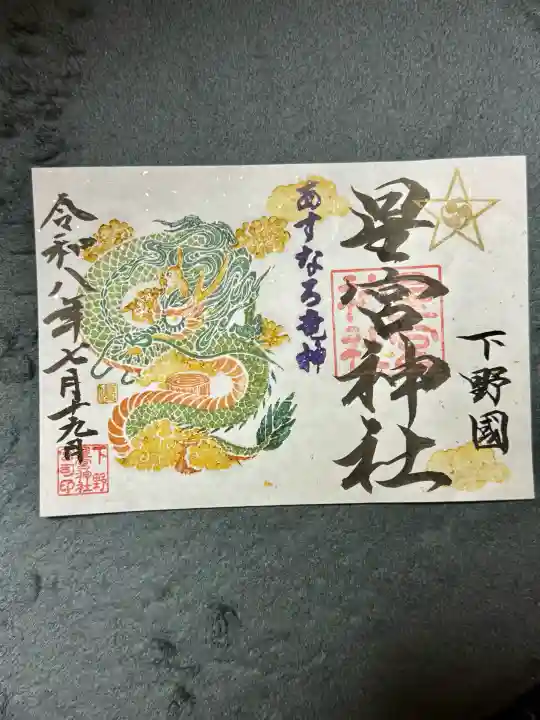 下野國
星宮神社
あすなろ竜神
令和八年七月十九日
下野
星宮神社
宮司印